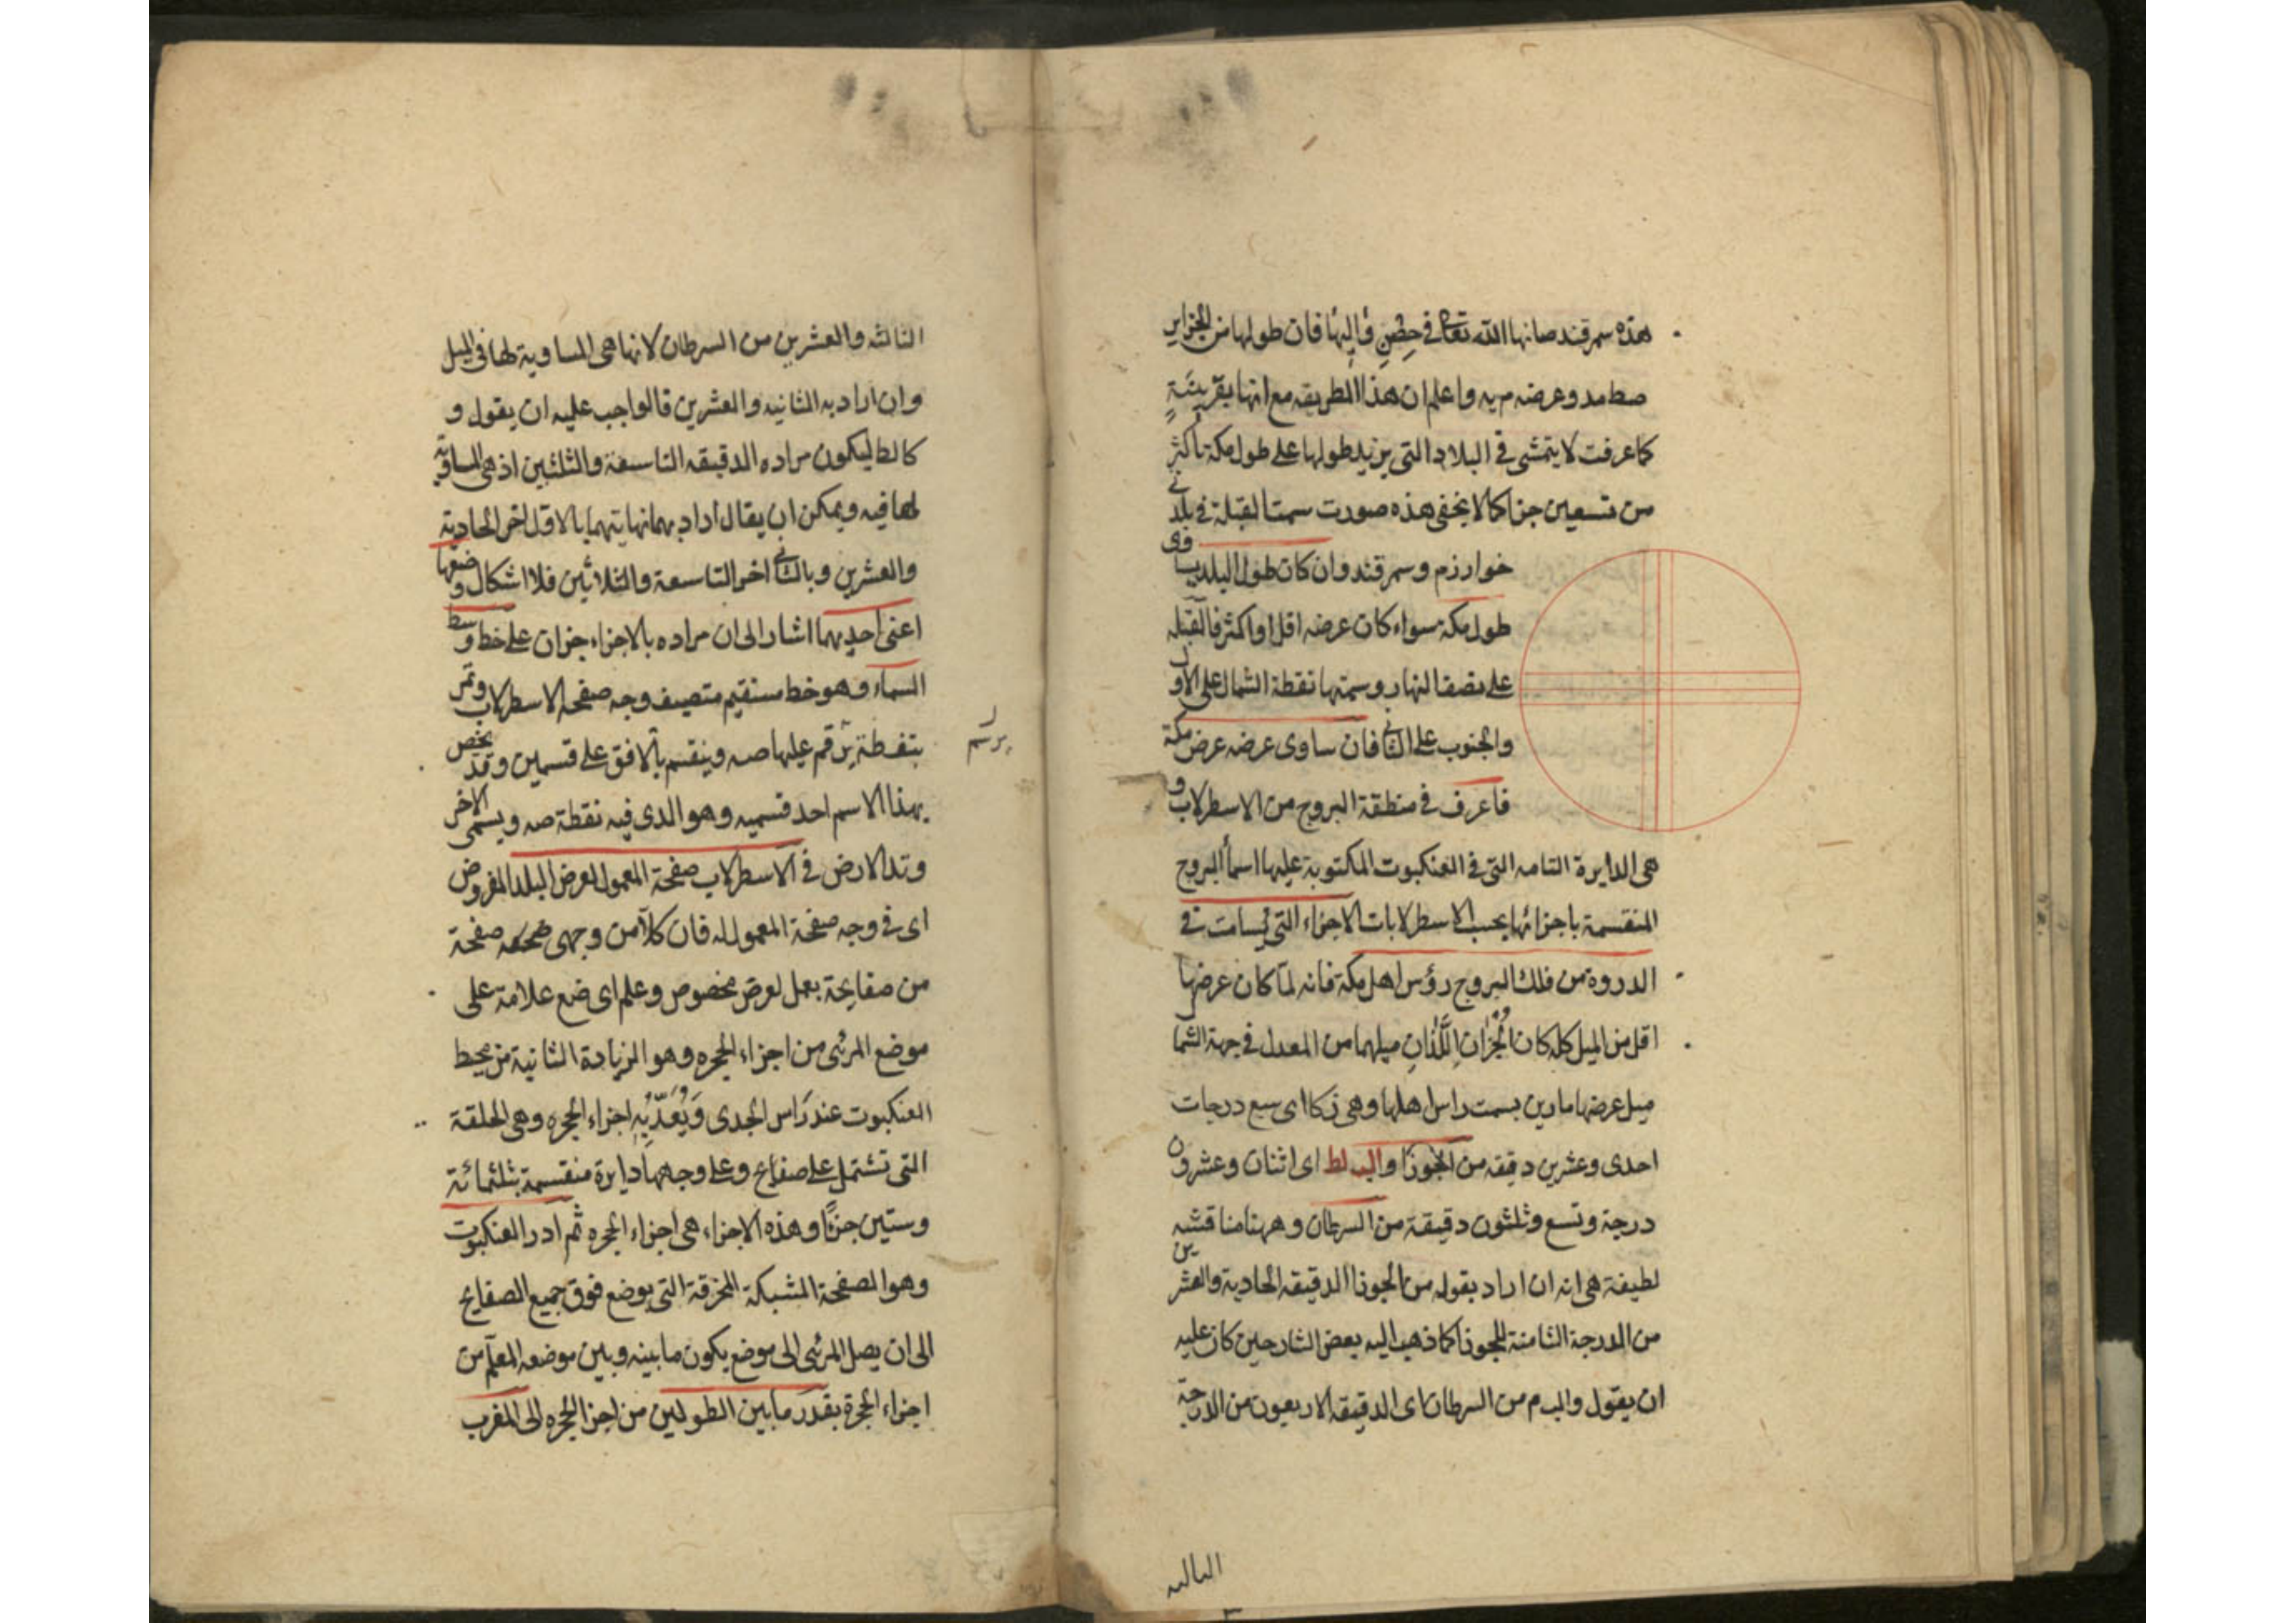 هذه سمرقند صانها الله تعالى في حصن واليها فان طولها من الجزاير
صط مد وعرضه م يه واعلم ان هذا الطريقه مع انها تقريبية
كما عرفت لا يتمشى في البلاد التى يزيد طولها على طول مكة باكثر
من تسعين جزا كما لا يخفى هذه صورت سمت القبلة في بلدتى
خوارزم وسمرقند وان كان طول البلد يساوى
طول مكة سواء كان عرضه اقل او اكثر فالقبله
على نصف النهار وسمتها نقطة الشمال على الاول
والجنوب على الثانى فان ساوى عرضه عرض مكة
فاعرف في منطقة البروج من الاسطرلاب و
هى الدايرة التامه التى في العنكبوت المكتوبة عليها اسمأ البروج
المنقسمة باجزائها بحسب الاسطرلابات الاجزاء التى تسامت في
الدروة من فلك البروج رؤس اهل مكة فانه لما كان عرضها
اقل من الميل كله كان الجزأن اللذان ميلهما من المعدل في جهة الشما
ميل عرضها مارين بسمت راس اهلها وهى ز كا اى سبع درجات
احدى وعشرين دقيقه من الجوزا والب لط اى اثنان وعشرون
درجة وتسع وثلثون دقيقة من السرطان وههنا مناقشه
لطيفة هى انه ان اراد بقوله من الجوزا الدقيقه الحادية والعشرين
من الدرجة الثامنة للجوزا كما ذهب اليه بعض الشارحين كان عليه
ان يقول والب م من السرطان اى الدقيقه الاربعون من الدرجة
الثالثه
الثالثه والعشرين من السرطان لانها هى المساوية لها في الميل
وان اراد به الثانيه والعشرين فالواجب عليه ان يقول و
كا لط ليكون مراده الدقيقه التاسعة والثلثين اذ هى المساوية
لها فيه ويمكن ان يقال اراد بهما نهايتهما بالاول اخر الحادية
والعشرين وبالثانى اخر التاسعة والثلاثين فلا اشكال وضعها
اعنى احديهما اشار الى ان مراده بالاجزاء جزان على خط وسط
السماء وهو خط مستقيم متصيف وجه صفحه الاسطرلاب وتمر
بنقطة يرقم عليها صه وينقسم بالافق على قسمين وقد يخص
يرسم
بهذا الاسم احد قسميه وهو الدى فيه نقطة صه ويسمى الاخر
وتد الارض في الاسطرلاب صفحة المعمول لعرض البلد المفروض
اى في وجه صفحة المعمول له فان كلا من وجهى صفحة
من صفايحة يعمل لعرض مخصوص وعلم اى ضع علامة على
موضع المرئى من اجزاء الحجره وهو الزيادة الثانية من محيط
العنكبوت عند راس الجدى ويعد به اجزاء الحجره وهى الحلقة
التى تشتمل على صفايح وعلى وجهها دايرة منقسمة بثلثمائة
وستين جزأ وهذه الاجزاء هى اجزاء الحجره ثم ادر العنكبوت
وهو الصفحة المشبكة المخرقة التى يوضع فوق جميع الصفايح
الى ان يصل المرئى الى موضع يكون ما بينه وبين موضعه المعلم من
اجزاء الحجرة بقدر ما بين الطولين من اجزا الحجره الى المغرب